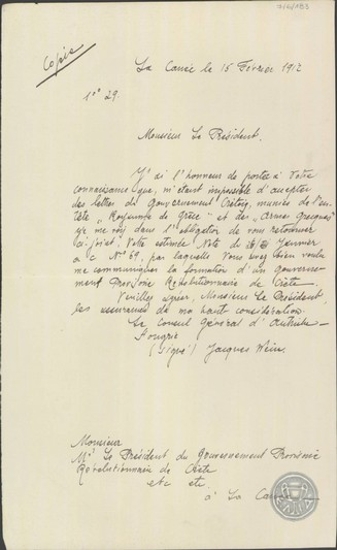 Copie
La Canée le 15 Février 1912
No 29.
Monsieur Le Président.
J'ai l'honneur de porter à Votre
connaissance que, m'étant impossible d'accepter
des lettres du Gouvernement Crétois, munies de l'en-
tête "Royaume de Grèce" et des "Armes Grecques"
je me vois dans l'obligation de vous retourner
ci-joint Votre estimée Note du Janvier
a c No 69, par laquelle Vous avez bien voulu
me communiquer la formation d'un gouverne-
ment Provisoire Révolutionnaire de Crète.
Veuillez agréer, Monsieur Le Président,
les assurances de ma haute considération.
Le Consul Général d'Autriche-
Hongrie
(signé) Jacques Wein.
Monsieur
Mr Le Président du Gouvernement Provisoire
Révolutionnaire de Crète
etc etc.
à La Canée